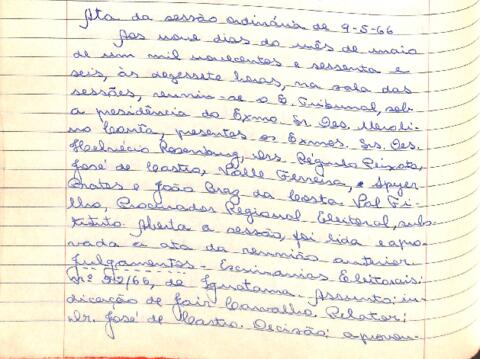 Ata da sessão ordinária de 9-5-66
Aos nove dias do mês de maio
de um mil novecentos e sessenta e
seis, às dezessete horas, na sala das
sessões, reuniu-se o E. Tribunal, sob
a presidência do Exmo. Sr. Des. Merolino
Corrêa, presentes os Exmos. Srs. Des.
Rosenburg, Drs. Régulo Peixoto,
José de Castro, Valle Ferreira, e Spyer
Prates e João Braz da Costa Val Fi-
lho, Procurador Regional Eleitoral, subs-
tituto. Aberta a sessão, foi lida e apro-
vada a ata da reunião anterior.
Julgamentos - Escrivanias Eleitorais:
Nº 92/66, de Iguatama. Assunto: in-
dicação de Jair Carvalho. Relator:
Dr. José de Castro. Decisão: aprovou-